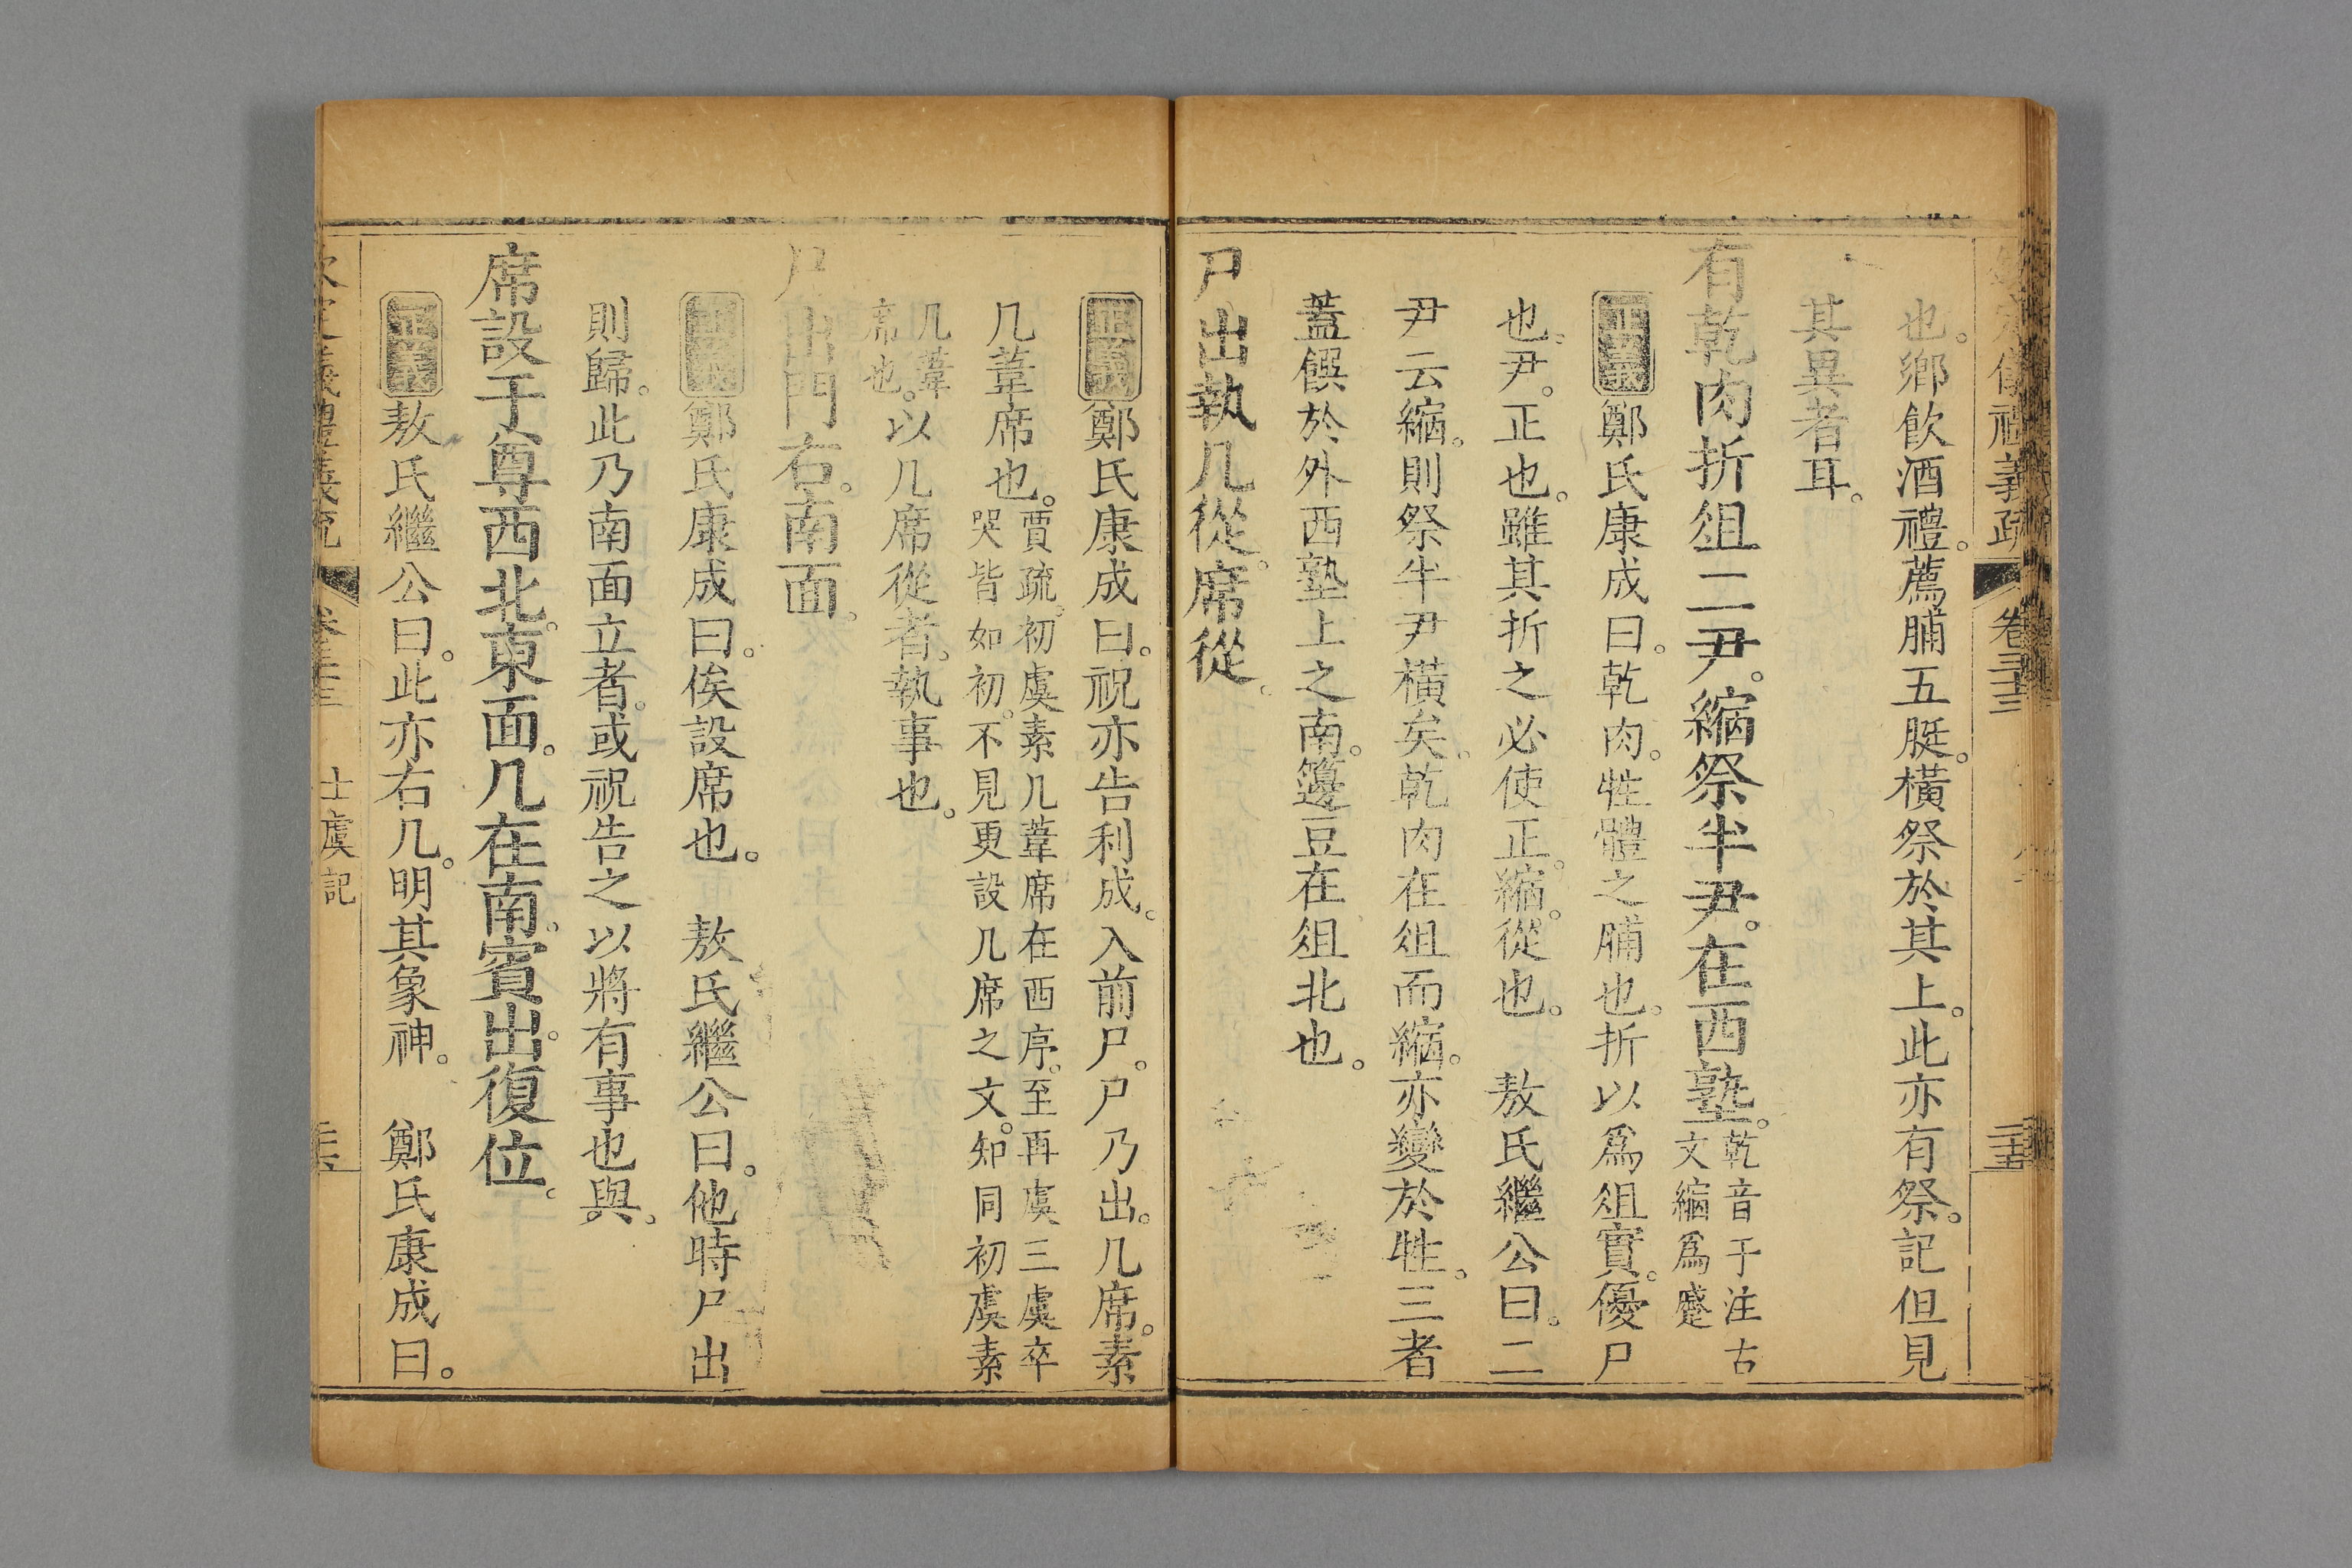 欽定儀禮義疏 卷三十三 二十五
也。鄉飲酒禮。薦脯五脡。橫祭於其上。此亦有祭。記但見
其異者耳。
有乾肉折俎二尹。縮祭半尹。在西塾。乾音干注古文縮爲蹙
正義鄭氏康成曰。乾肉。牲體之脯也。折以爲俎實。優尸
也。尹。正也。雖其折之必使正。縮。從也。 敖氏繼公曰。二
尹云縮。則祭半尹橫矣。乾肉在俎而縮。亦變於牲。三者
蓋饌於外西塾上之南。籩豆在俎北也。
尸出執几從。席從。
正義鄭氏康成曰。祝亦告利成。入前尸。尸乃出。几席。素
几葦席也。賈疏。初虞素几葦席在西序。至再虞三虞卒哭皆如初。不見更設几席之文。知同初虞素
几葦席也。以几席從者。執事也。
尸出門右。南面。
正義鄭氏康成曰。俟設席也。 敖氏繼公曰。他時尸出
則歸。此乃南面立者。或祝告之以將有事也與。
席設于尊西北。東面。几在南。賓出。復位。
正義敖氏繼公曰。此亦右几。明其象神。 鄭氏康成曰。
欽定儀禮義疏 卷三十三 士虞記